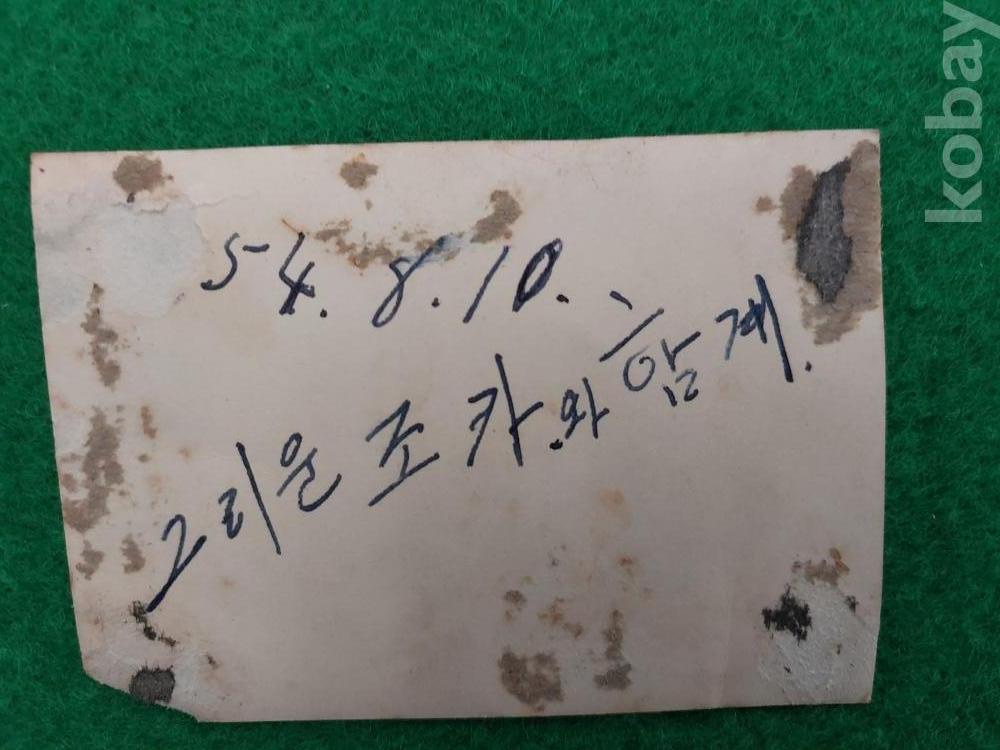 54. 8. 10.
그리운 조카와 함께.
kobay